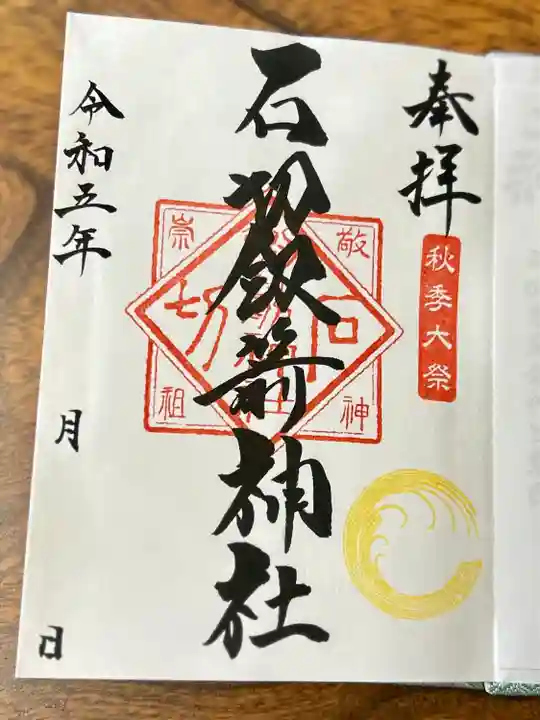 奉拝
秋季大祭
石切劔箭神社
敬神
石切
崇祖
令和五年 月 日